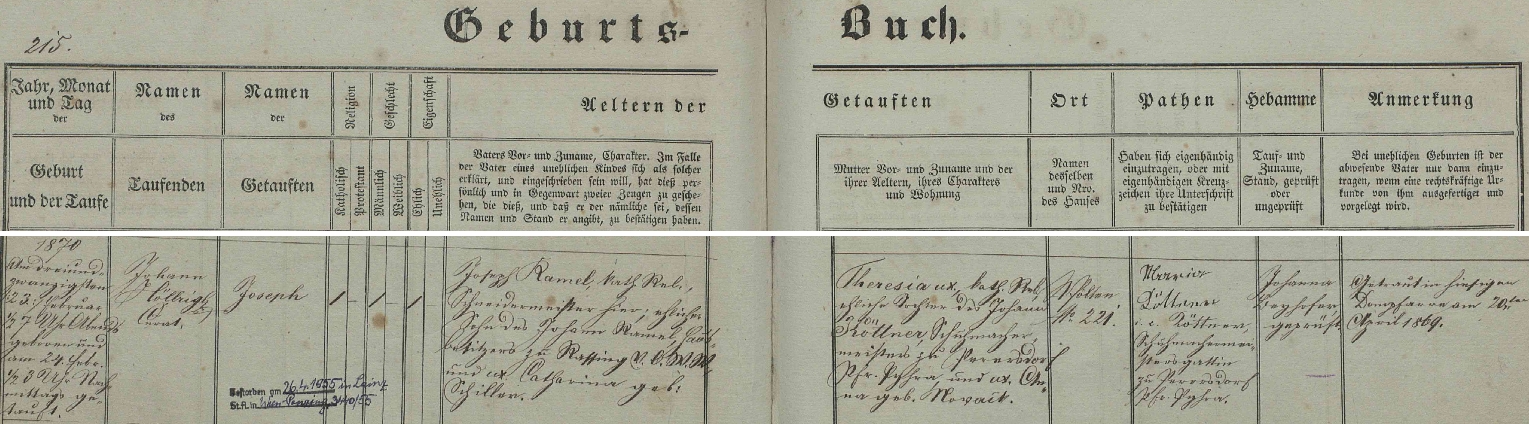 Geburts-Buch.
215.
Jahr, Monat
und Tag
der
Geburt
und der Taufe
Namen
des
Taufenden
Namen
der
Getauften
Religion
Katholisch
Protestant
Geschlecht
Männlich
Weiblich
Eigenschaft
Ehlich
Unehlich
Aeltern der
Getauften
Vaters Vor- und Zuname, Charakter. Im Falle
der Vater eines unehlichen Kindes sich als solcher
erklärt, und eingeschrieben sein will, hat dieß per-
sönlich und in Gegenwart zweier Zeugen zu gesche-
hen, die dieß, und daß er der nämliche sei, dessen
Namen und Stand er angibt, zu bestätigen haben.
Mutter Vor- und Zuname und der
ihrer Aeltern, ihres Charakters
und Wohnung
Ort
Namen
desselben
und Nro.
des Hauses
Pathen
Haben sich eigenhändig
einzutragen, oder mit
eigenhändigen Kreuz-
zeichen ihre Unterschrift
zu bestätigen
Hebamme
Tauf- und
Zuname,
Stand, geprüft
oder
ungeprüft
Anmerkung
Bei unehlichen Geburten ist der
abwesende Vater nur dann einzu-
tragen, wenn eine rechtskräftige Ur-
kunde von ihm ausgefertiget und
vorgelegt wird.
1870
Am dreiund-
zwanzigsten
23. Februar
½7 Uhr Abends
geboren und
am 24. Febr.
½3 Uhr Nach
mittags ge-
tauft.
Johann
Curat.
Joseph
Joseph Ramel, kath. Rel.,
Schneidermeister hier, ehlicher
Sohn des Johann Ramel, Haus-
besitzers zu Rassing V.O.W.W.
und ux. Catharina geb.
Schiller.
Gestorben am 26.4.1955 in Lainz
St.A. in Wien-Penzing, 3440/55
Theresia ux. kath. Rel.,
ehliche Tochter des Johann
Köttner, Schuhmacher-
meisters zu Perersdorf
Pfr. Pyhra, und ux. An-
na geb. Novack.
St Pölten
Nr 221.
Maria
Köttner
i.e. Köttner,
Schuhmachermei-
stersgattin
zu Perersdorf
Pfr. Pyhra.
Johanna
geprüft
Getraut in hiesigen
Dompfarre am 20ten
April 1869.